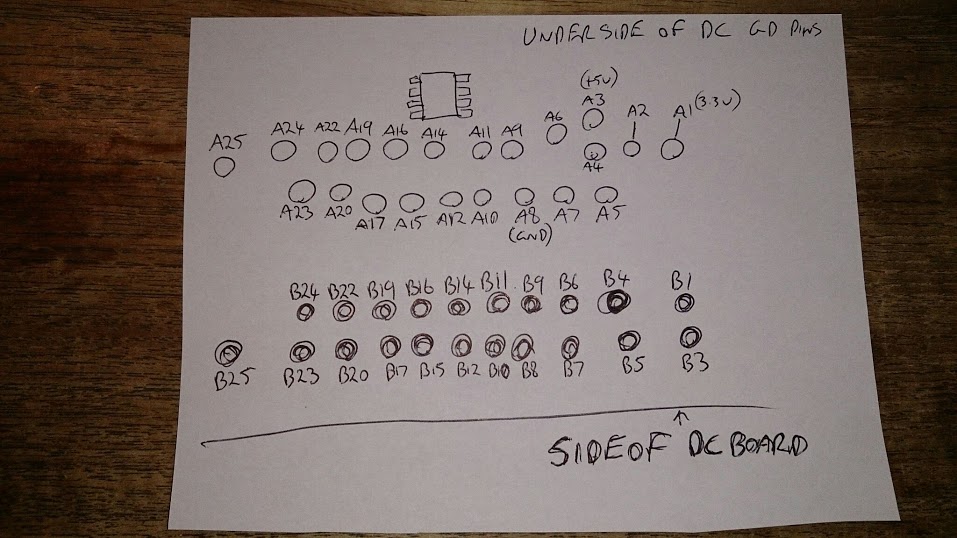 UNDERSIDE OF DC GD PINS
(+5V)
A25 A24 A22 A19 A16 A14 A11 A9 A6 A3 A2 A1 (3.3V)
A4
A23 A20 A17 A15 A12 A10 A8 A7 A5
(GND)
B24 B22 B19 B16 B14 B11 B9 B6 B4 B1
B25 B23 B20 B17 B15 B12 B10 B8 B7 B5 B3
SIDE OF DC BOARD